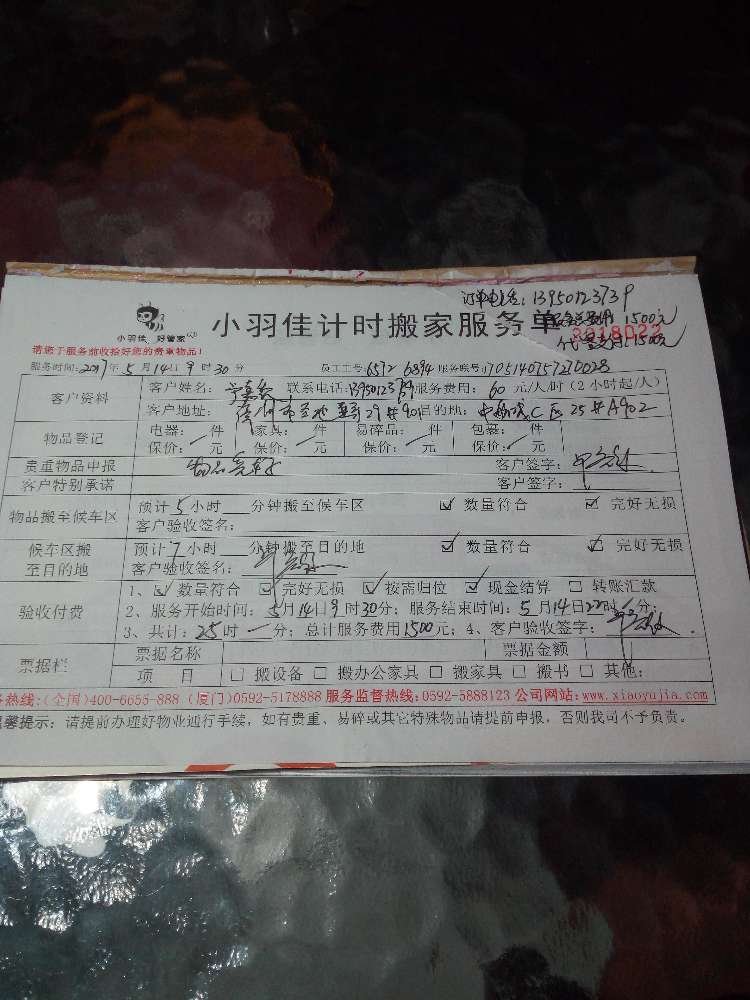 订单电话：13950123739
小羽佳 好管家
小羽佳计时搬家服务单
1500元
3018022
代 1500元
请您于服务前收拾好您的贵重物品！
服务时间：2017年5月14日9时30分 员工工号：6572 6894 服务账号：1705140757270028
客户资料
客户姓名： 联系电话：13950123739 服务费用：60元/人/时（2小时起/人）
客户地址： 29#901 目的地： C区25#A902
物品登记
电器： 件 家具： 件 易碎品： 件 包裹： 件
保价： 元 保价： 元 保价： 元 保价： 元
贵重物品申报 客户签字：
客户特别承诺 客户签字：
物品搬至候车区
预计5小时 分钟搬至候车区 ☑ 数量符合 ☑ 完好无损
客户验收签名：
候车区搬至目的地
预计7小时 分钟搬至目的地 ☑ 数量符合 ☑ 完好无损
客户验收签名：
验收付费
1、☑ 数量符合 ☑ 完好无损 ☑ 按需归位 ☑ 现金结算 □ 转账汇款
2、服务开始时间：5月14日9时30分；服务结束时间：5月14日22时 分；
3、共计：25时一分；总计服务费用1500元；4、客户验收签字：
票据栏
票据名称 票据金额
项 目 □ 搬设备 □ 搬办公家具 □ 搬家具 □ 搬书 □ 其他：
务热线：（全国）400-6655-888（厦门）0592-5178888 服务监督热线：0592-5888123 公司网站：www.xiaoyujia.com
温馨提示：请提前办理好物业通行手续，如有贵重、易碎或其它特殊物品请提前申报，否则我司不予负责。